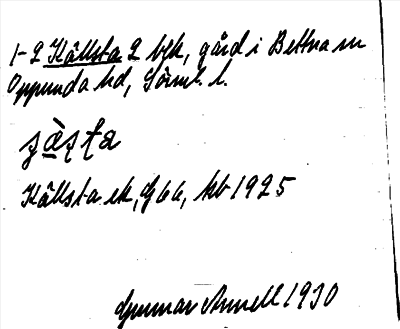 1-2 Källsta 2 byk, gård i Bettna sn
Oppunda hd, Sörml. l.
Källsta ek, G 66, kb 1925
Gunnar Annell 1930